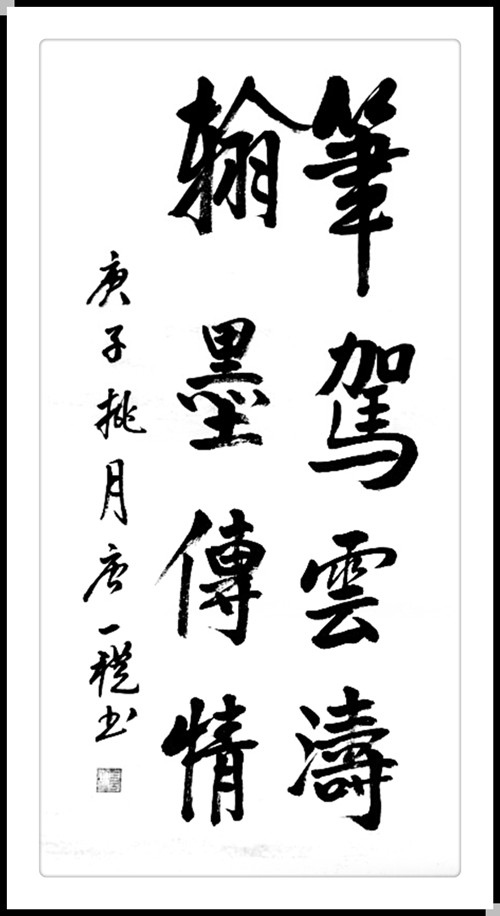 筆駕雲濤
翰墨傳情
庚子桃月唐一稷书